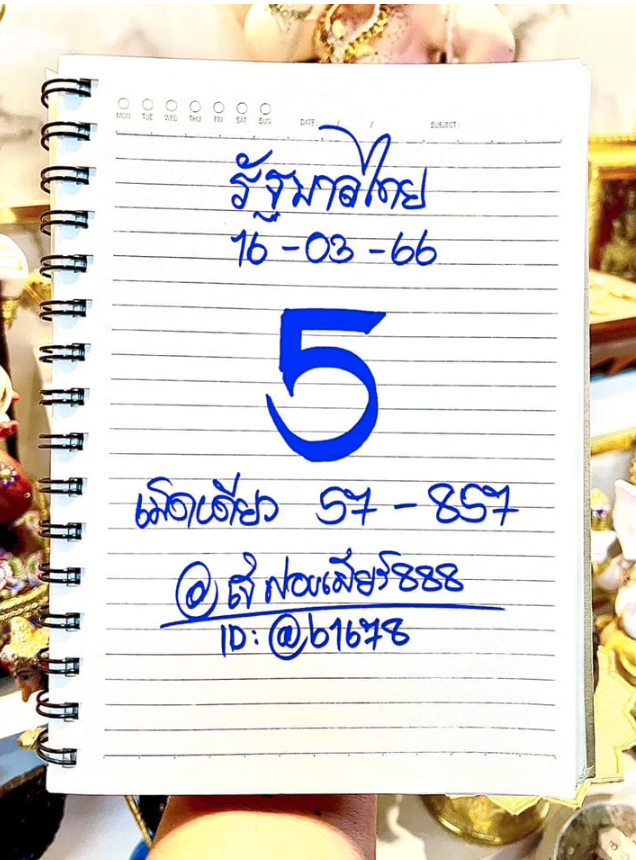 MON TUE WED THU FRI SAT SUN DATE / / SUBJECT :
รัฐบาลไทย
16-03-66
5
เม็ดเดียว 57-857
ID: @b1678